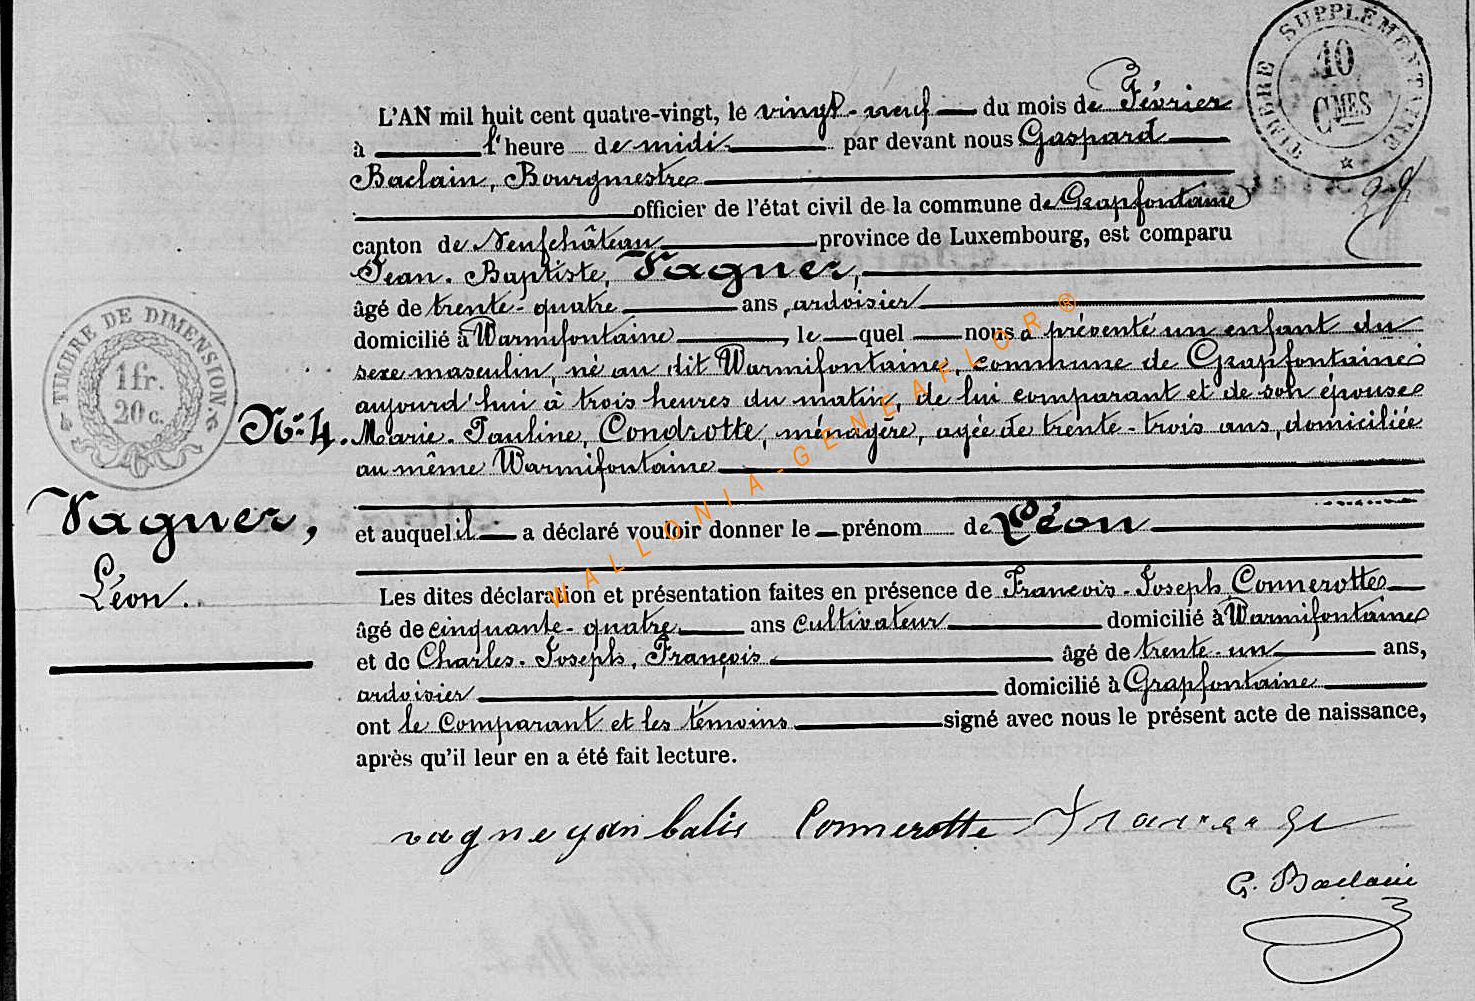 TIMBRE SUPPLÉMENTAIRE
10
CMES
L'AN mil huit cent quatre-vingt, le vingt-neuf du mois de Février
à l'heure de midi par devant nous Gaspard
Baclain, Bourgmestre
officier de l'état civil de la commune de Grapfontaine
canton de Neufchâteau province de Luxembourg, est comparu
Jean-Baptiste, Vagner,
âgé de trente-quatre ans, ardoisier
domicilié à Warmifontaine, le quel nous a présenté un enfant du
sexe masculin, né au dit Warmifontaine, commune de Grapfontaine
aujourd'hui à trois heures du matin, de lui comparant et de son épouse
TIMBRE DE DIMENSION.
1 fr.
20 c.
No: 4. Marie-Pauline, Condrotte, ménagère, agée de trente-trois ans, domiciliée
au même Warmifontaine
Vagner,
Léon.
et auquel il a déclaré vouloir donner le prénom de Léon
Les dites déclaration et présentation faites en présence de François-Joseph Connerotte
âgé de cinquante-quatre ans cultivateur domicilié à Warmifontaine
et de Charles-Joseph, François âgé de trente-un ans,
ardoisier domicilié à Grapfontaine
ont le comparant et les témoins signé avec nous le présent acte de naissance,
après qu'il leur en a été fait lecture.
Connerotte
G. Baclain
WALLONIA-GENEAFLOR®